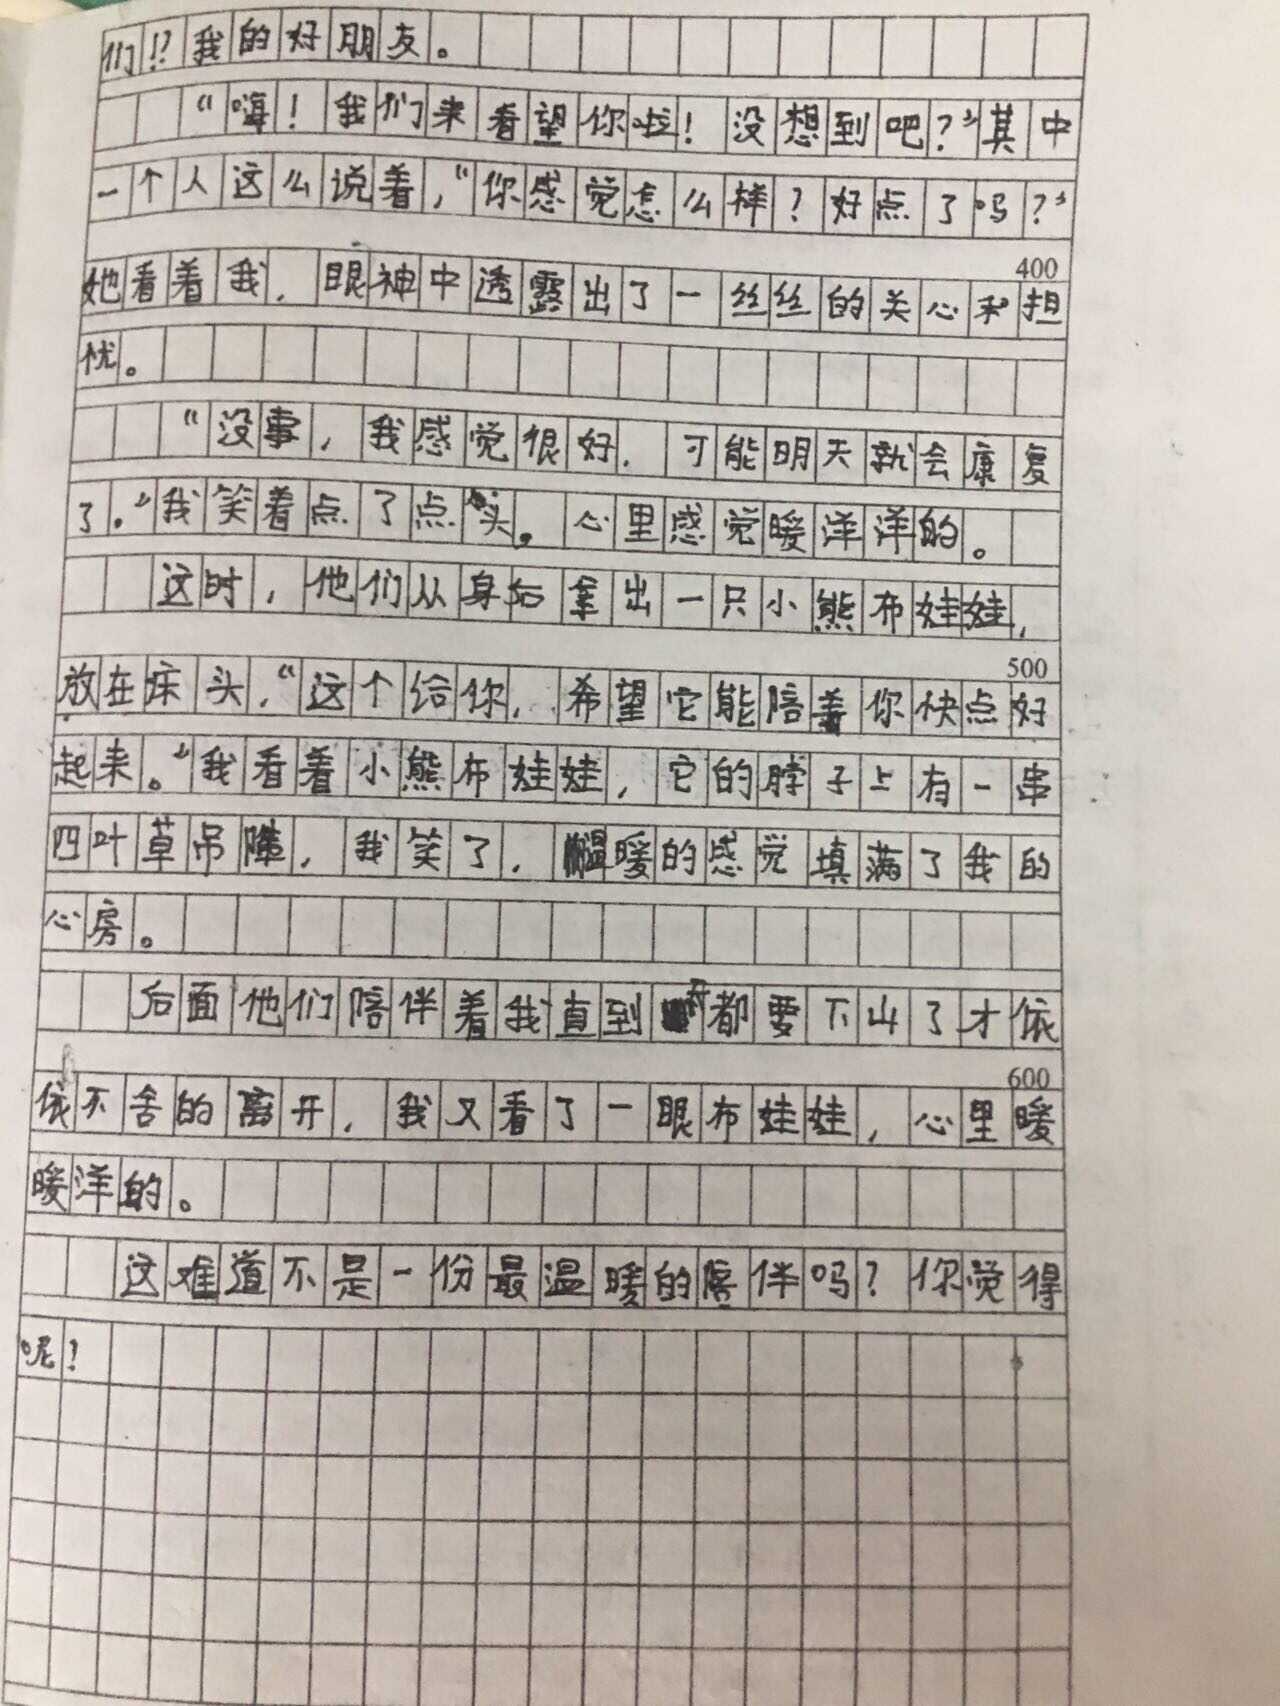 们!?我的好朋友。
“嗨！我们来看望你啦！没想到吧？”其中
一个人这么说着，“你感觉怎么样？好点了吗？”
400
她看着我，眼神中透露出了一丝丝的关心和担
忧。
“没事，我感觉很好，可能明天就会康复
了。”我笑着点了点头。心里感觉暖洋洋的。
这时，他们从身后拿出一只小熊布娃娃，
500
放在床头，“这个给你，希望它能陪着你快点好
起来。”我看着小熊布娃娃，它的脖子上有一串
四叶草吊，我笑了，温暖的感觉填满了我的
心房。
后面他们陪伴着我直到都要下山了才依
600
依不舍的离开，我又看了一眼布娃娃，心里暖
暖洋的。
这难道不是一份最温暖的陪伴吗？你觉得
呢？